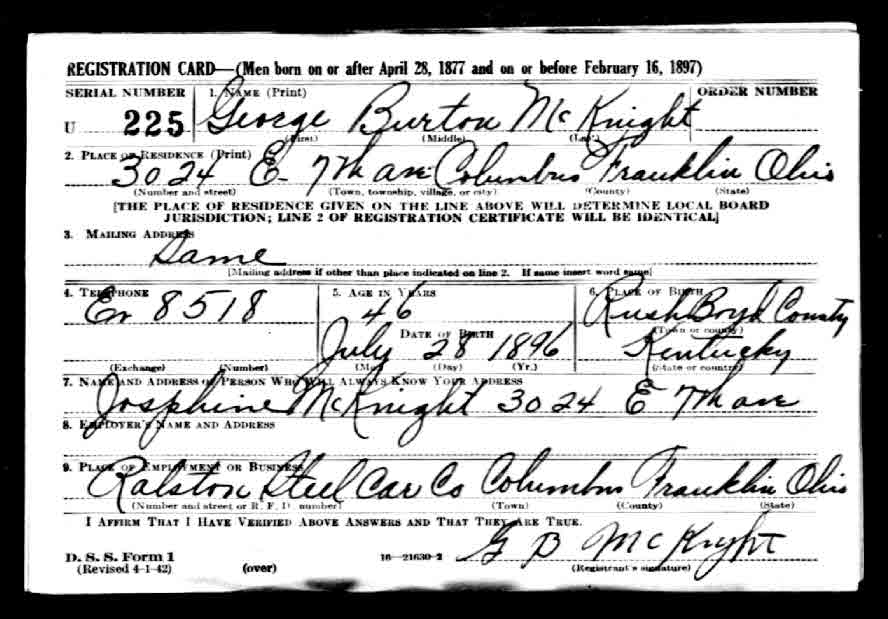 REGISTRATION CARD—(Men born on or after April 28, 1877 and on or before February 16, 1897)
SERIAL NUMBER 1. NAME (Print) ORDER NUMBER
U 225 George Burton McKnight
(First) (Middle) (Last)
2. PLACE OF RESIDENCE (Print)
3024 E. 7th ave Columbus Franklin Ohio
(Number and street) (Town, township, village, or city) (County) (State)
[THE PLACE OF RESIDENCE GIVEN ON THE LINE ABOVE WILL DETERMINE LOCAL BOARD
JURISDICTION; LINE 2 OF REGISTRATION CERTIFICATE WILL BE IDENTICAL]
3. MAILING ADDRESS
Same
[Mailing address if other than place indicated on line 2. If same insert word same]
4. TELEPHONE 5. AGE IN YEARS 6. PLACE OF BIRTH
Ev 8518 46 Rush Boyd County
DATE OF BIRTH (Town or county)
July 28 1896 Kentucky
(Exchange) (Number) (Mo.) (Day) (Yr.) (State or country)
7. NAME AND ADDRESS OF PERSON WHO WILL ALWAYS KNOW YOUR ADDRESS
Josphine McKnight 3024 E 7th ave
8. EMPLOYER'S NAME AND ADDRESS
9. PLACE OF EMPLOYMENT OR BUSINESS
Ralston Steel Car Co Columbus Franklin Ohio
(Number and street or R. F. D. number) (Town) (County) (State)
I AFFIRM THAT I HAVE VERIFIED ABOVE ANSWERS AND THAT THEY ARE TRUE.
D. S. S. Form 1 16—21630-2 G B McKnight
(Revised 4-1-42) (over) (Registrant's signature)